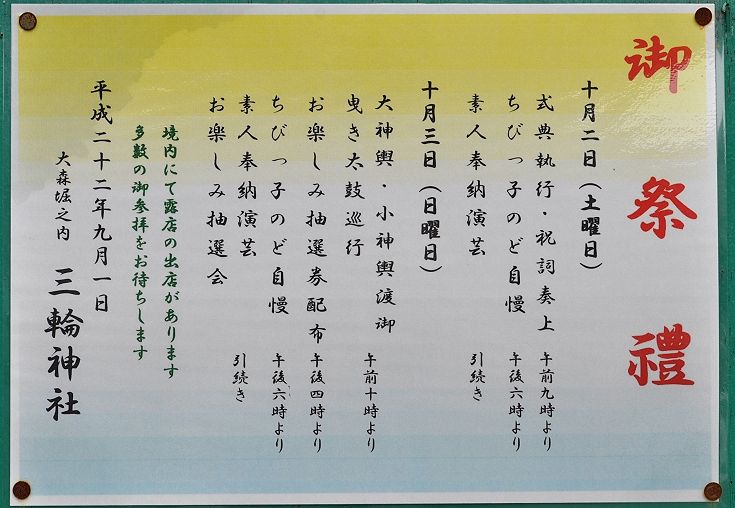 御祭禮
十月二日（土曜日）
式典執行・祝詞奏上 午前九時より
ちびっ子のど自慢 午後六時より
素人奉納演芸 引続き
十月三日（日曜日）
大神輿・小神輿渡御
曳き太鼓巡行 午前十時より
お楽しみ抽選券配布 午後四時より
ちびっ子のど自慢 午後六時より
素人奉納演芸 引続き
お楽しみ抽選会
境内にて露店の出店があります
多数の御参拝をお待ちします
平成二十二年九月一日
大森堀之内 三輪神社